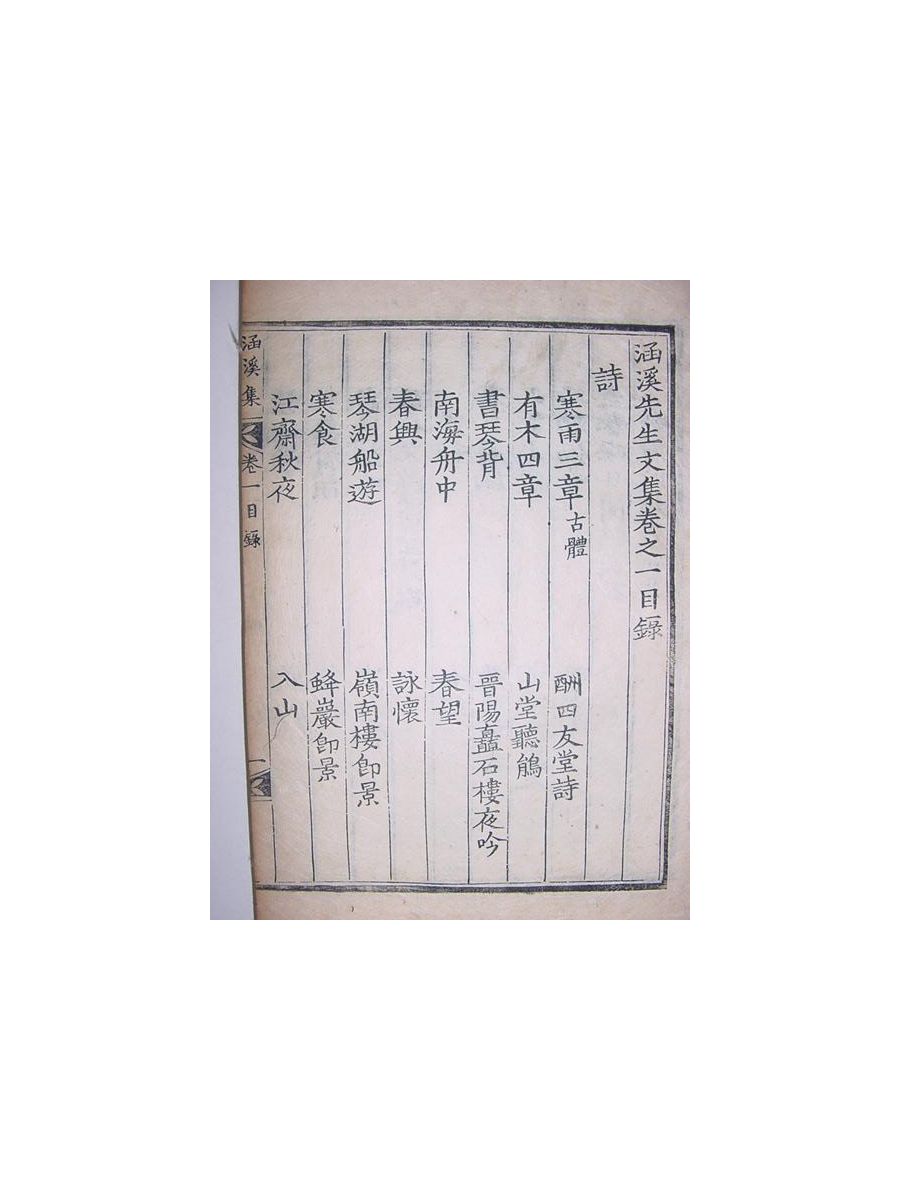 涵溪先生文集卷之一目錄
詩
寒雨三章 古體 酬四友堂詩
有木四章 山堂聽鵑
書琴背 晋陽矗石樓夜吟
南海舟中 春望
春興 詠懷
琴湖船遊 嶺南樓卽景
寒食 蜂巖卽景
江齋秋夜 入山
涵溪集 卷一目錄 一